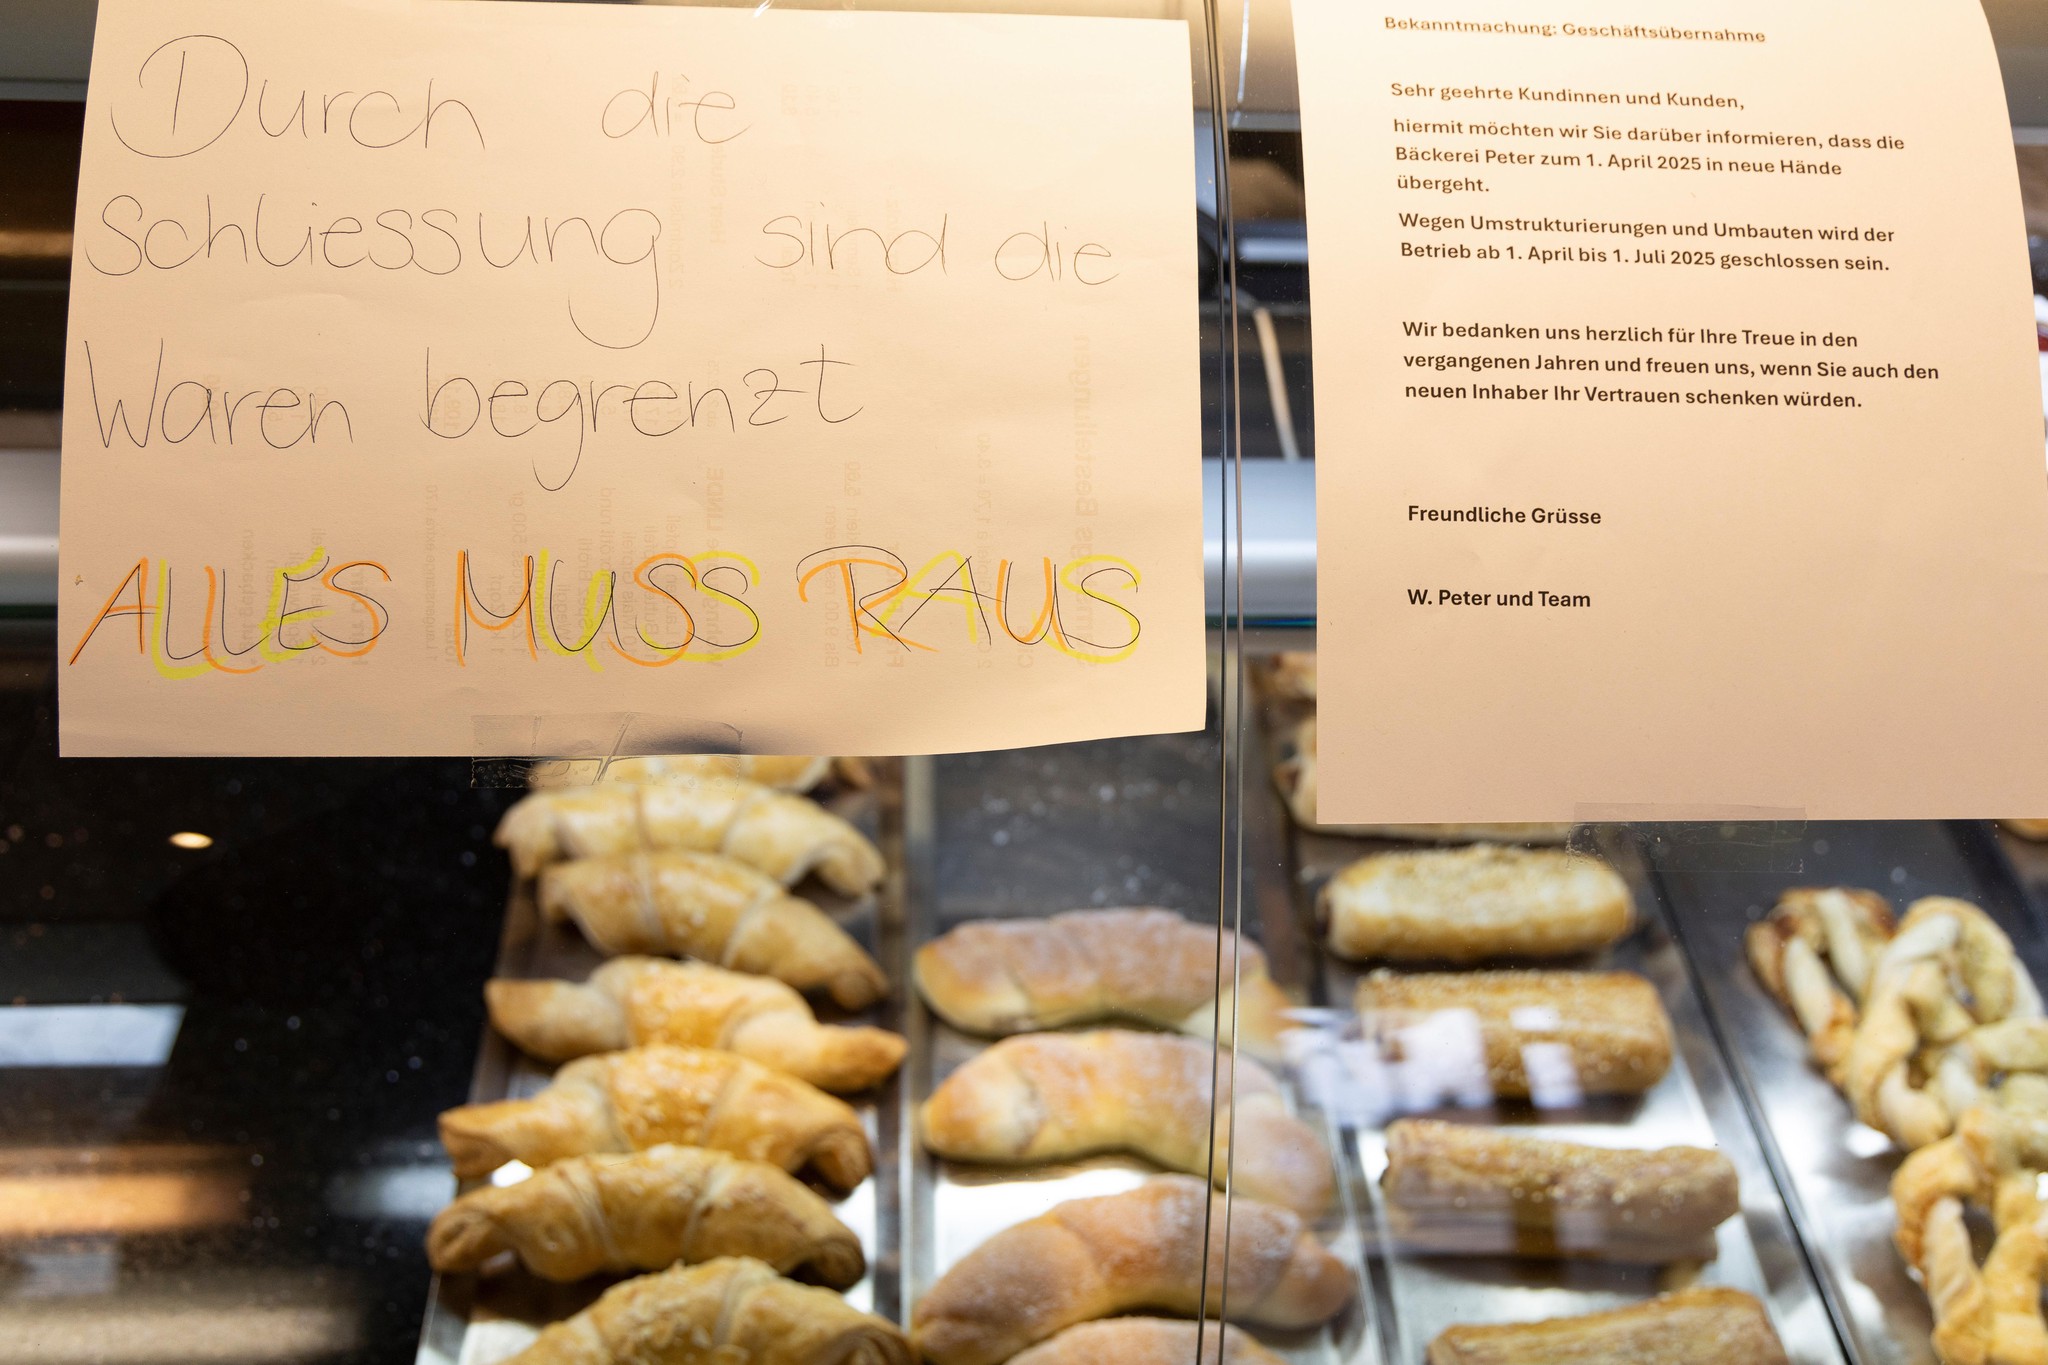 Durch die
Schliessung sind die
Waren begrenzt
ALLES MUSS RAUS
Bekanntmachung: Geschäftsübernahme
Sehr geehrte Kundinnen und Kunden,
hiermit möchten wir Sie darüber informieren, dass die
Bäckerei Peter zum 1. April 2025 in neue Hände
übergeht.
Wegen Umstrukturierungen und Umbauten wird der
Betrieb ab 1. April bis 1. Juli 2025 geschlossen sein.
Wir bedanken uns herzlich für Ihre Treue in den
vergangenen Jahren und freuen uns, wenn Sie auch den
neuen Inhaber Ihr Vertrauen schenken würden.
Freundliche Grüsse
W. Peter und Team